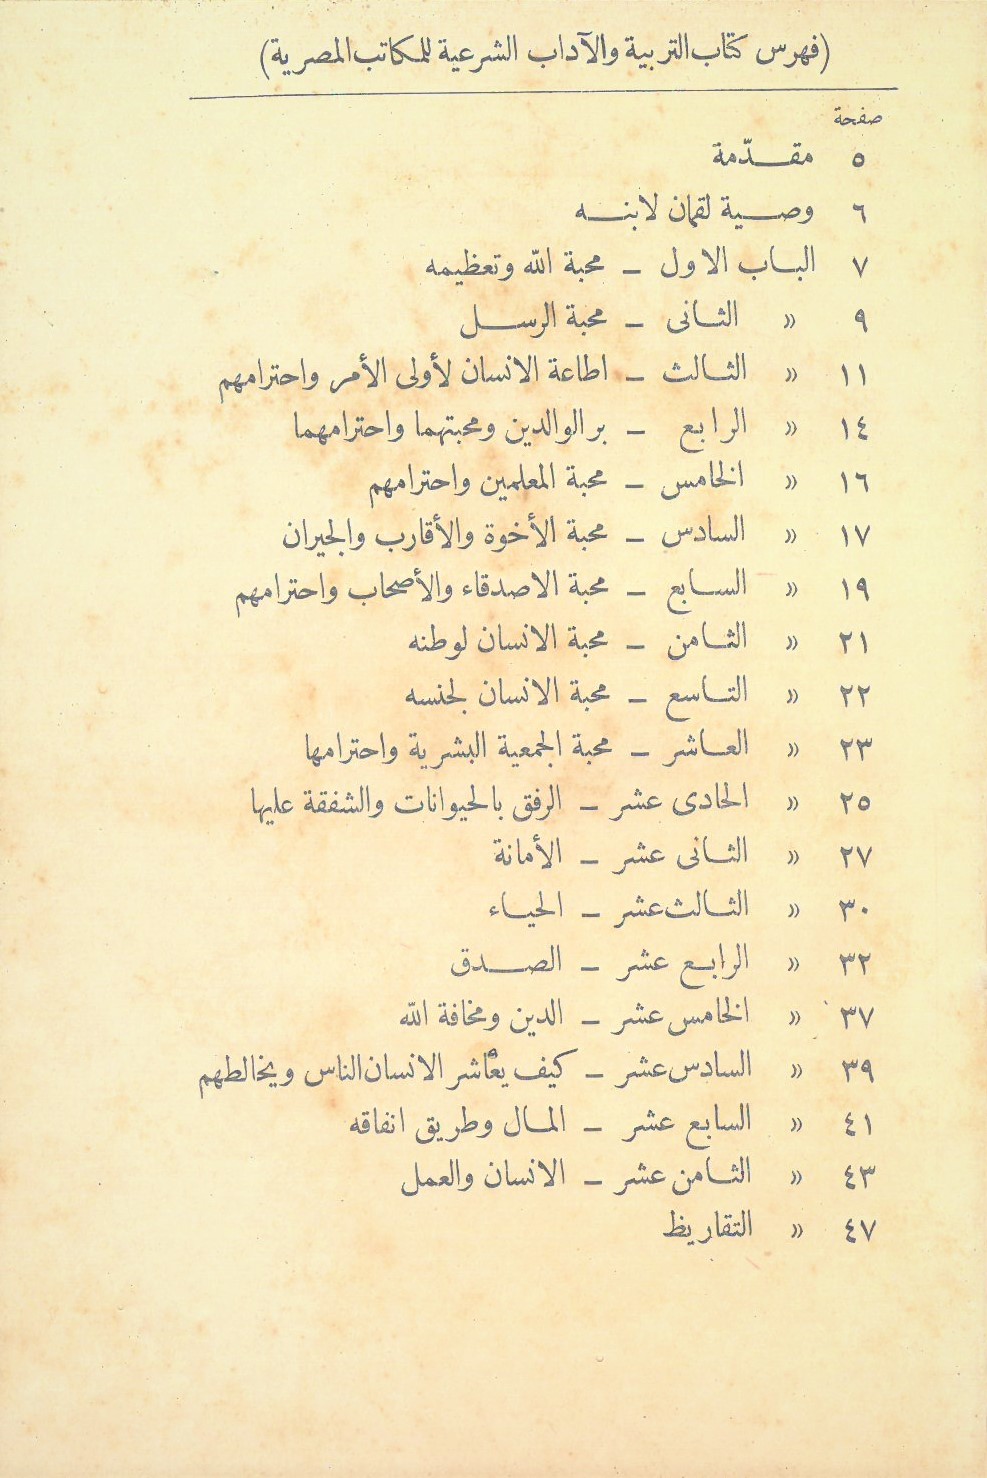 (فهرس كتاب التربية والآداب الشرعية للمكاتب المصرية)
صفحة
٥ مقدّمة
٦ وصية لقمان لابنه
٧ الباب الاول – محبة الله وتعظيمه
٩ » الثانى – محبة الرسل
١١ » الثالث – اطاعة الانسان لأولى الأمر واحترامهم
١٤ » الرابع – بر الوالدين ومحبتهما واحترامهما
١٦ » الخامس – محبة المعلمين واحترامهم
١٧ » السادس – محبة الأخوة والأقارب والجيران
١٩ » السابع – محبة الاصدقاء والأصحاب واحترامهم
٢١ » الثامن – محبة الانسان لوطنه
٢٢ » التاسع – محبة الانسان لجنسه
٢٣ » العاشر – محبة الجمعية البشرية واحترامها
٢٥ » الحادى عشر – الرفق بالحيوانات والشفقة عليها
٢٧ » الثانى عشر – الأمانة
٣٠ » الثالث عشر – الحياء
٣٢ » الرابع عشر – الصدق
٣٧ » الخامس عشر – الدين ومخافة الله
٣٩ » السادس عشر – كيف يعاشر الانسان الناس ويخالطهم
٤١ » السابع عشر – المال وطريق انفاقه
٤٣ » الثامن عشر – الانسان والعمل
٤٧ » التقاريظ